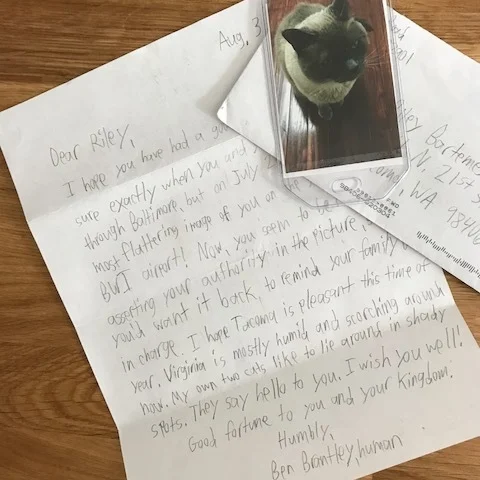 Aug. 3
Dear Riley,
I hope you have had a
sure exactly when you and
through Baltimore but on July
most flattering image of you on
BWI airport! Now, you seem to be
asserting your authority in the picture,
you'd want it back, to remind your family
in charge. I hope Tacoma is pleasant this time of
year. Virginia is mostly humid and scorching around
now. My own two cats like to lie around in shady
spots. They say hello to you. I wish you well!
Good fortune to you and your kingdom.
Humbly,
Ben Brantley, human
N. 21st S
WA
98406